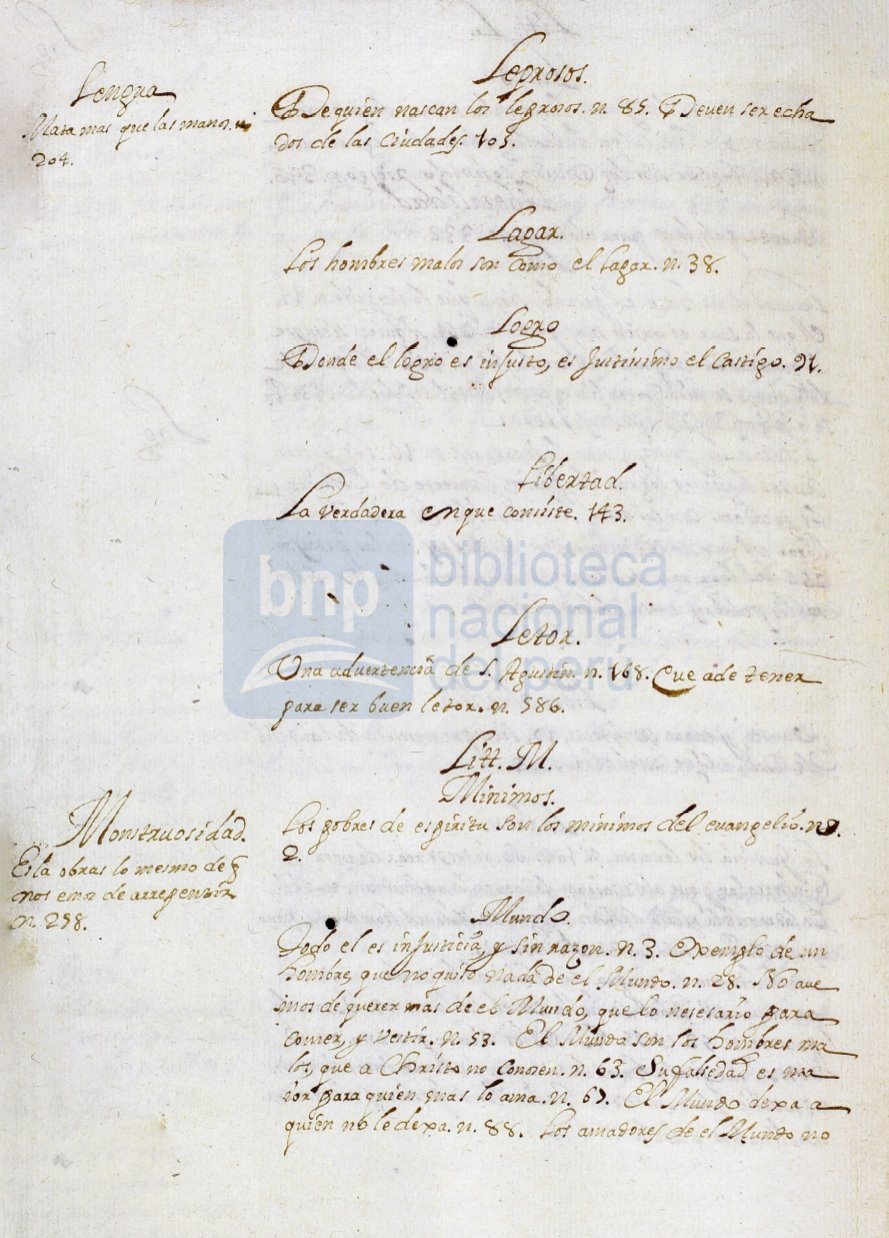 Lengua
Mata mas que las manos. n.
204.
Leprosos.
De quien nascan los leprosos. n. 85. Deven ser echa
dos de las Ciudades. 105.
Lagar.
Los hombres malos son como el lagar. n. 38.
Logro
Donde el logro es injusto, es Justissimo el Castigo. 91.
Libertad.
La verdadera en que consiste. 143.
bnp biblioteca
nacional
del perú
Letor.
Una advertencia de S. Agustin. n. 168. Que ade tener
para ser buen letor. n. 586.
Litt. M.
Minimos.
Los pobres de espiritu son los minimos del evangelio. n.
2.
Monstruosidad.
Es la obras lo mesmo de q̃
nos emos de arrepentir
n. 258.
Mundo.
Todo el es injusticia, y sin razon. n. 3. Exemplo de un
hombre, que no quito nada de el Mundo. n. 28. No ave
mos de querer mas de el Mundo, que lo nesesario para
comer, y vestir. n. 53. El Mundo son los hombres ma
los, que a Christo no conosen. n. 63. Su falsedad es ma
ior para quien mas lo ama. n. 67. El Mundo dexa a
quien no le dexa. n. 88. Los amadores de el Mundo no